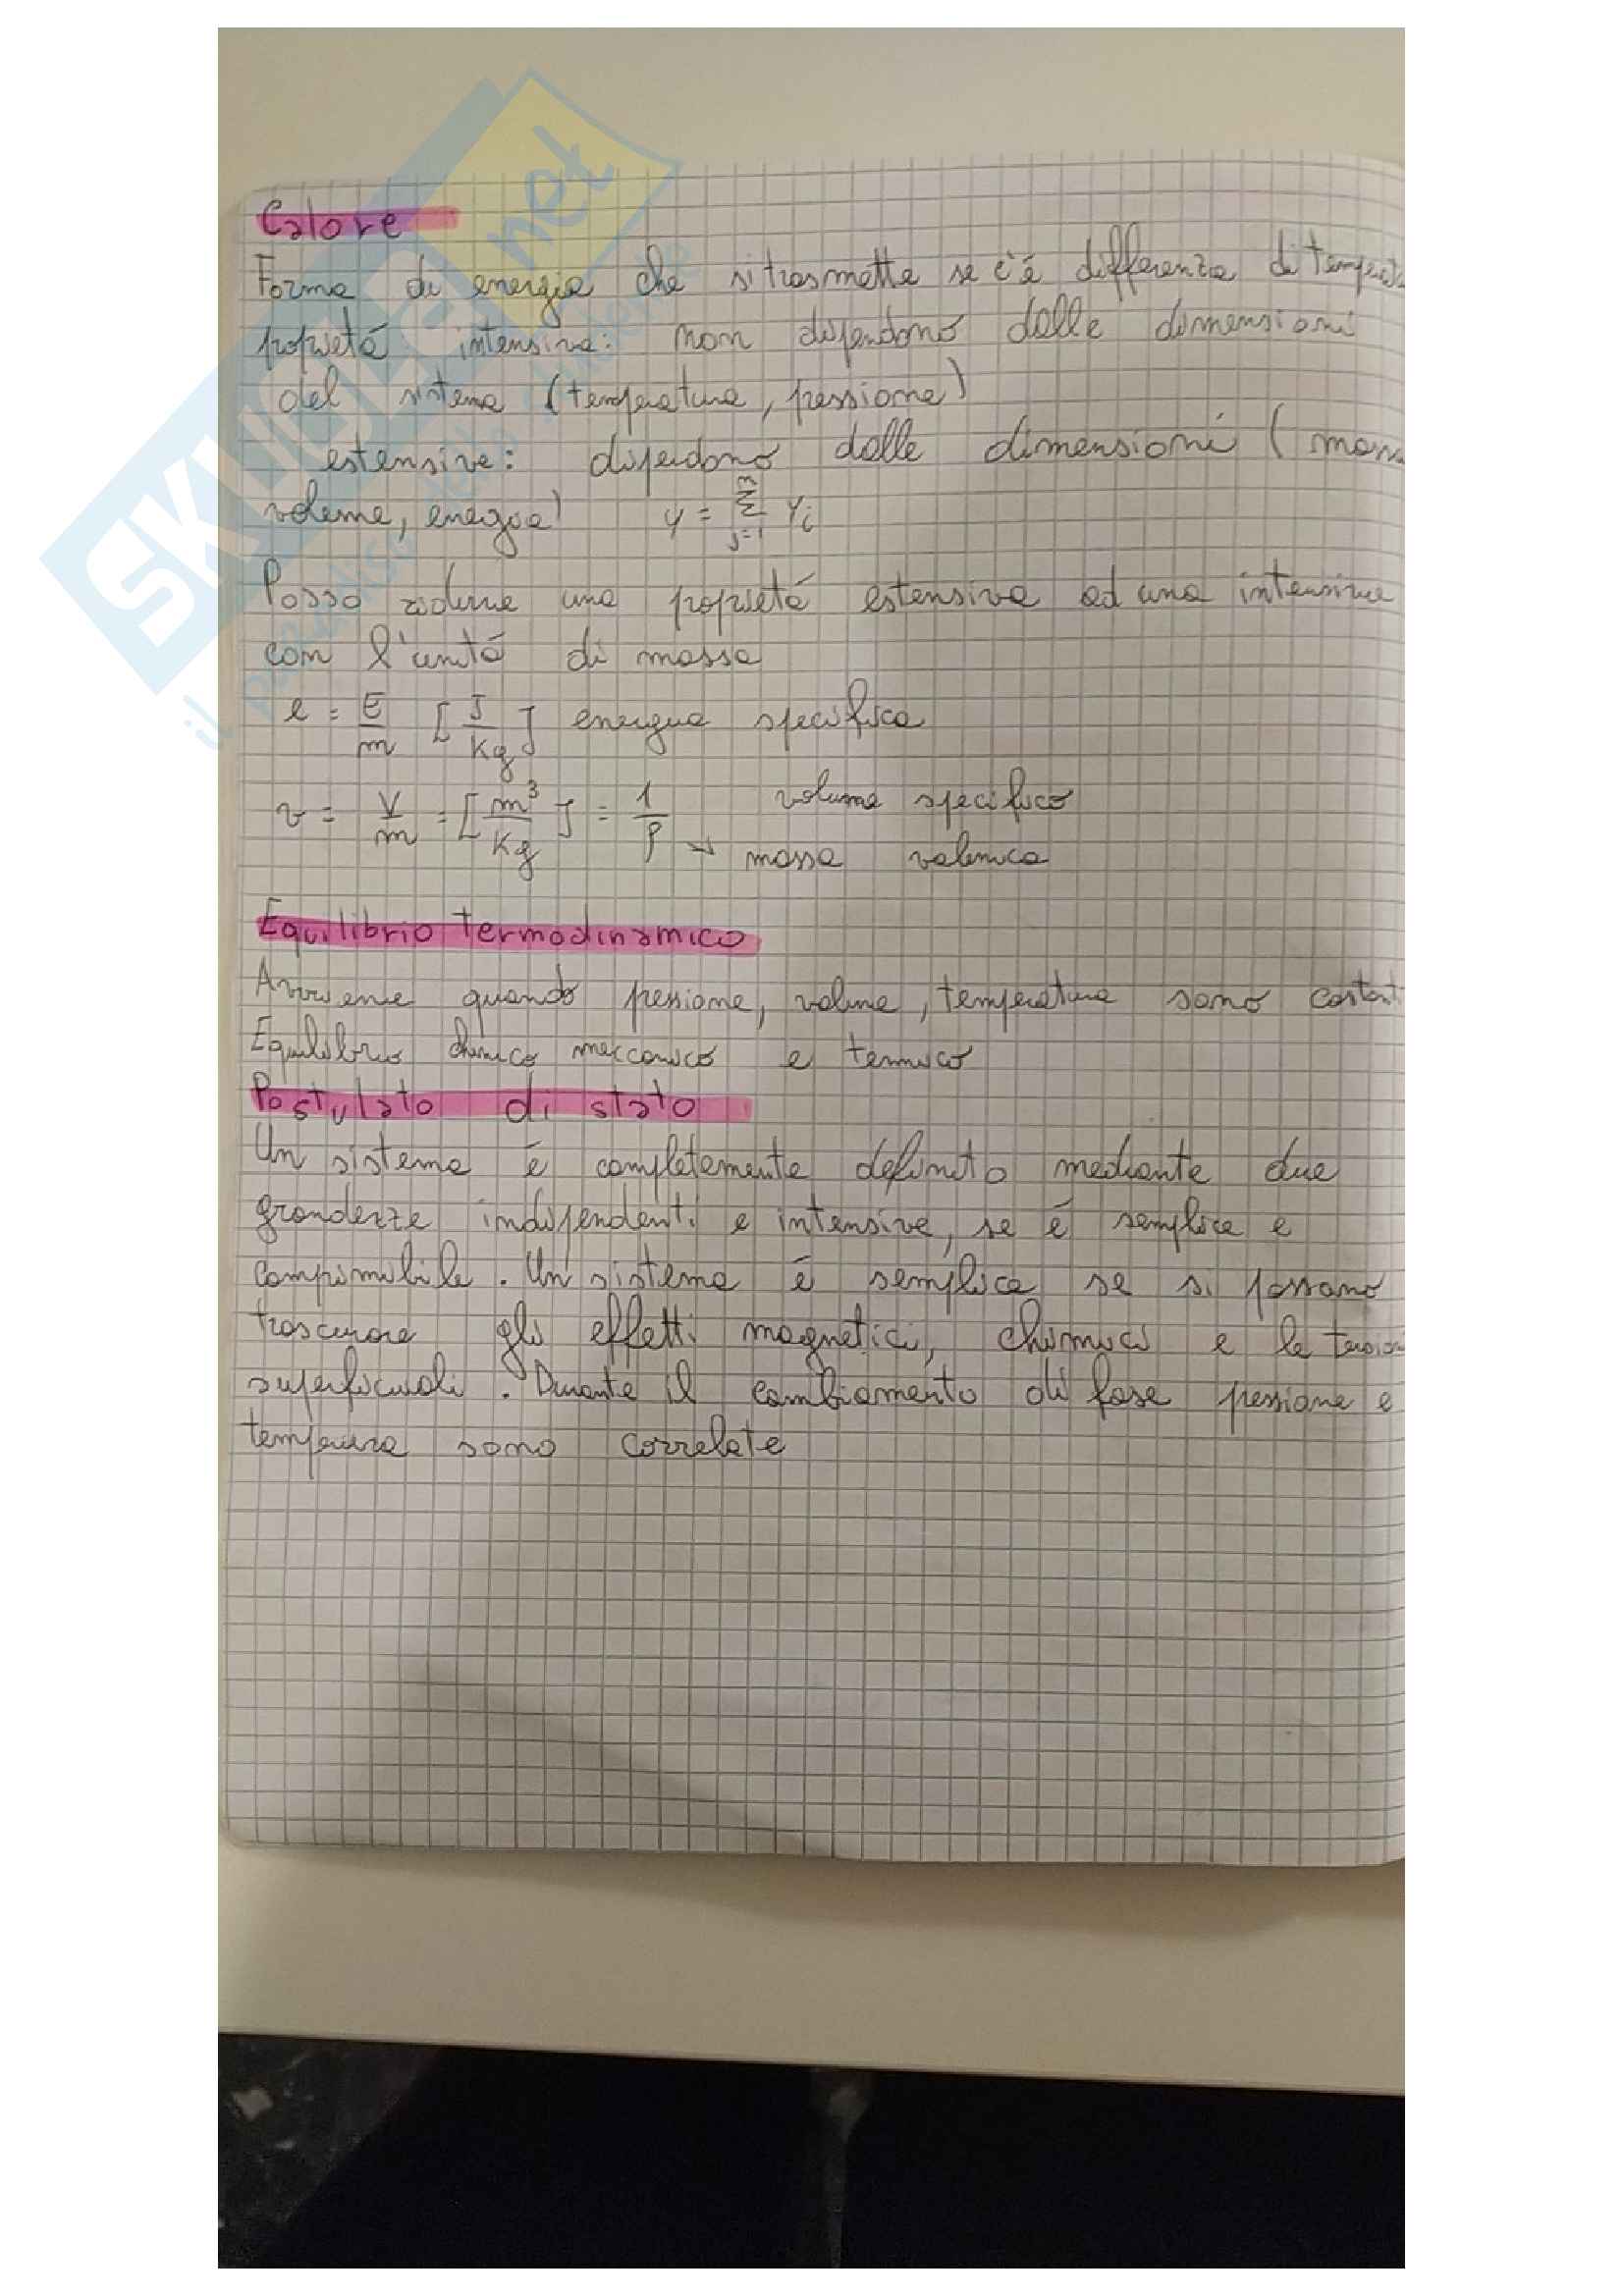 Calore
Forma di energia che si trasmette se c'é differenza di temperat
propietá intensive: non dipendono dalle dimensioni
del sistema (temperatura, pressione)
estensive: dipendono dalle dimensioni (massa
volume, energia) y = Σ yi n j=1
Posso ridurre una propietá estensiva ad una intensiva
con l'unitá di massa
e = E/m [J/Kg] energia specifica
v = V/m = [m³/Kg] = 1/ρ volume specifico
→ massa volumica
Equilibrio termodinamico
Avviene quando pressione, volume, temperatura sono costanti
Equilibrio chimico meccanico e termico
Postulato di stato
Un sistema é completamente definito mediante due
grandezze indipendenti e intensive, se é semplice e
comprimibile. Un sistema é semplice se si possono
trascurare gli effetti magnetici, chimici e le tensioni
superficiali. Durante il cambiamento di fase pressione e
sono correlate
SKUOLA.net
il paradiso dello studente